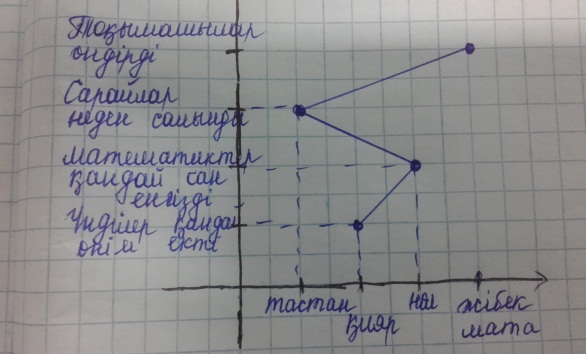 Тоқымашылар
өндірді
Сарайлар
неден салынды
математиктер
қандай сан
енгізді
Үнділер қандай
өнім екті
тастан
қияр
нөл
жібек
мата